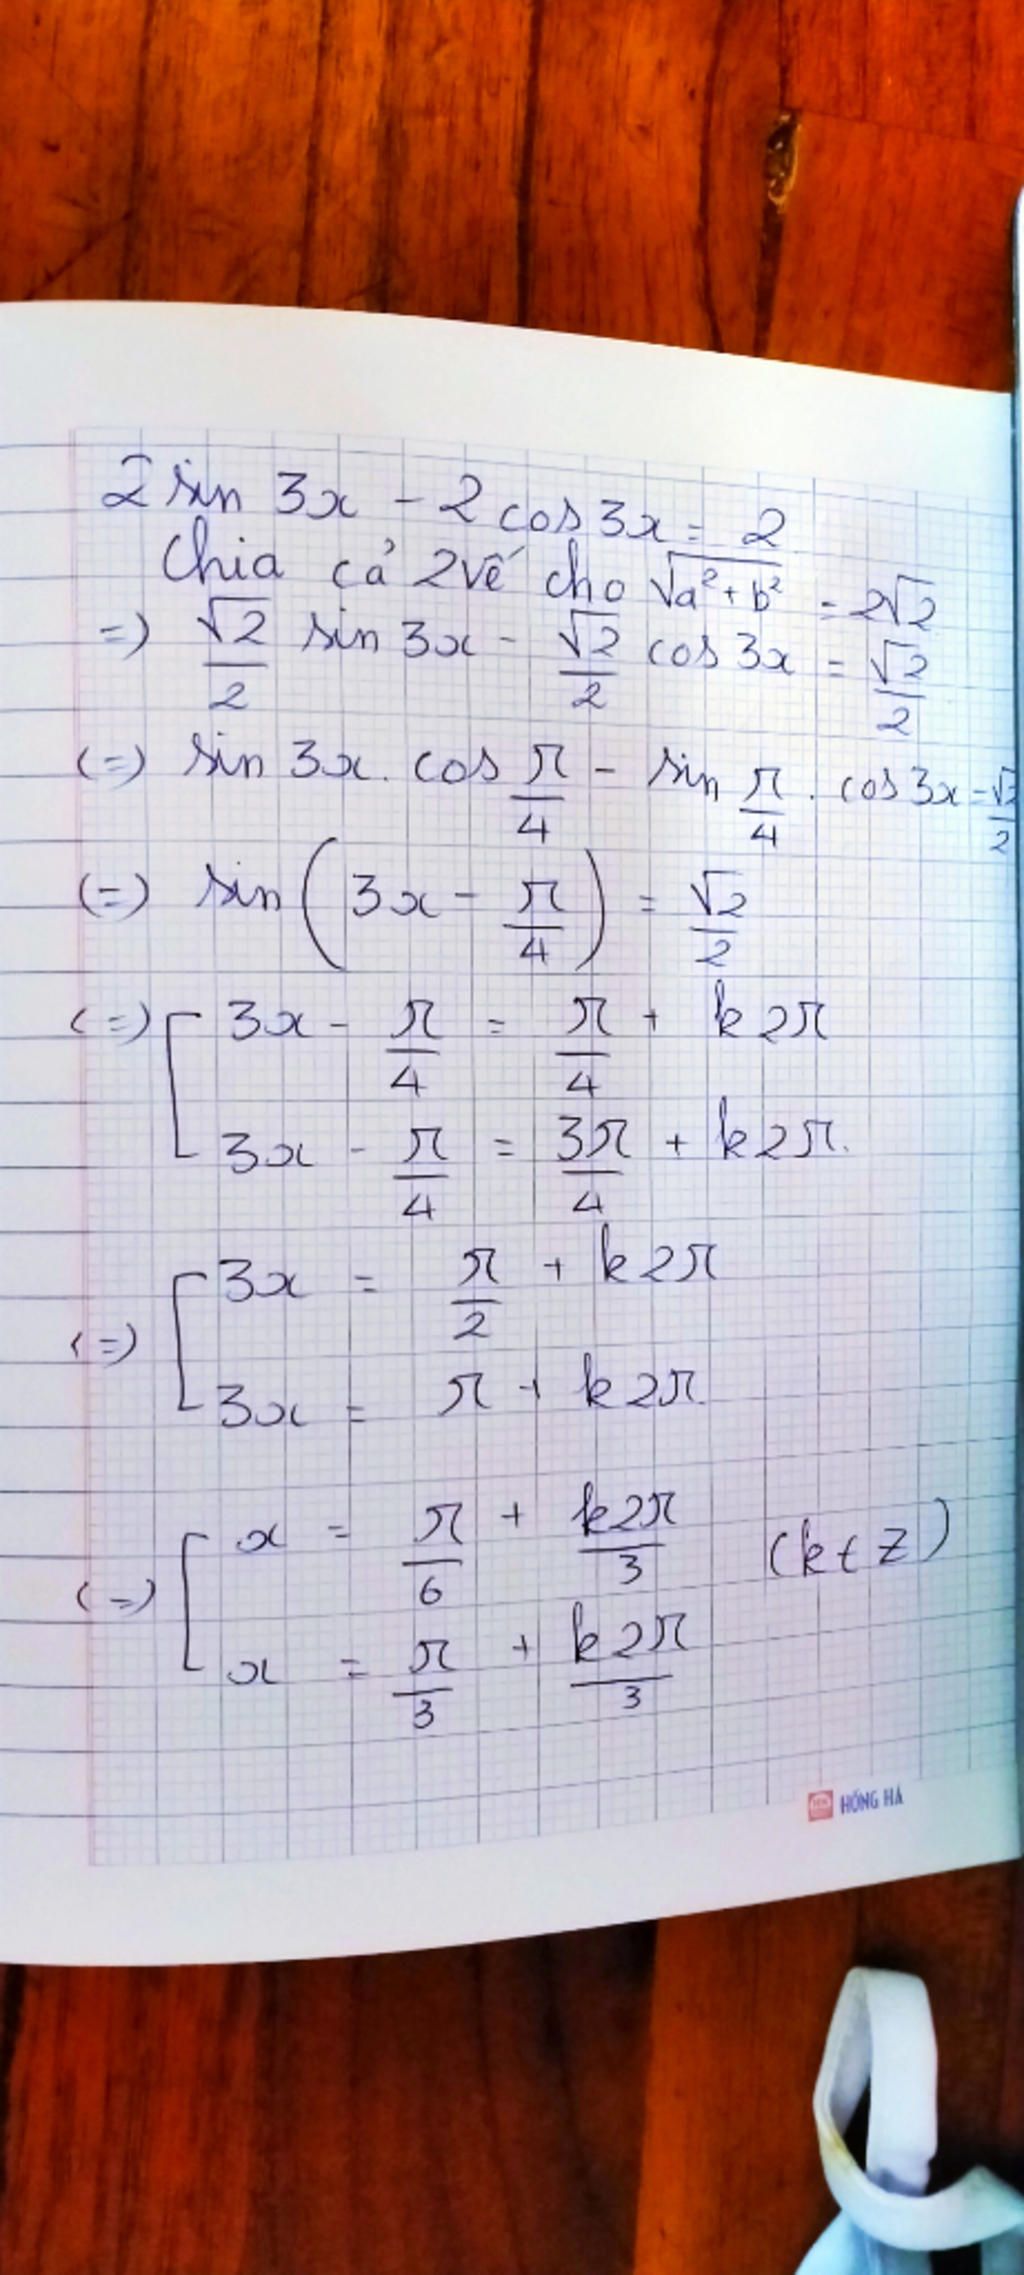 2 sin 3x - 2 cos 3x = 2
Chia cả 2 vế cho √(a² + b²) = 2√2
=) √2/2 sin 3x - √2/2 cos 3x = √2/2
(=) sin 3x . cos π/4 - sin π/4 . cos 3x = √2/2
(=) sin (3x - π/4) = √2/2
(=) [ 3x - π/4 = π/4 + k2π
3x - π/4 = 3π/4 + k2π.
(=) [ 3x = π/2 + k2π
3x = π + k2π
(=) [ x = π/6 + k2π/3 (k ∈ Z)
x = π/3 + k2π/3
HỒNG HÀ